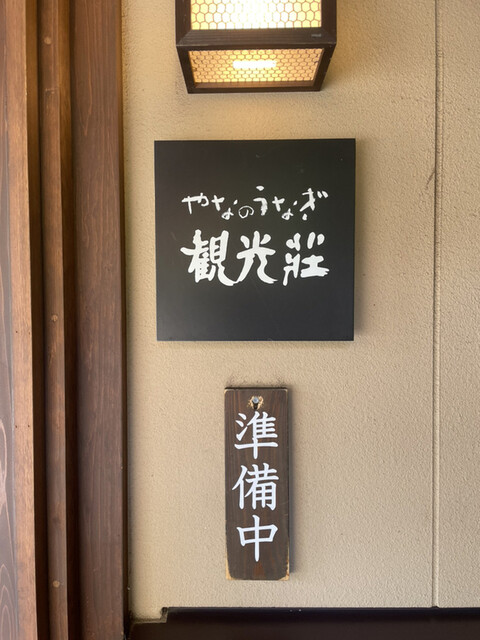 やなのうなぎ
観光荘
準備中